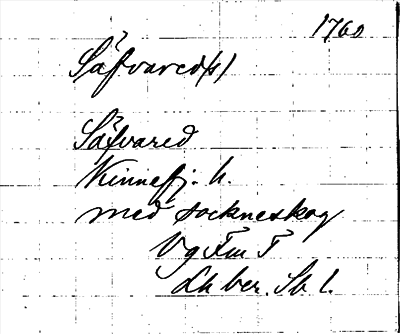 1760
Säfvared(s)
Säfvared
Kinnefj. h.
med sockneskog
Vg Fm I
Lh ber. Sb 1.